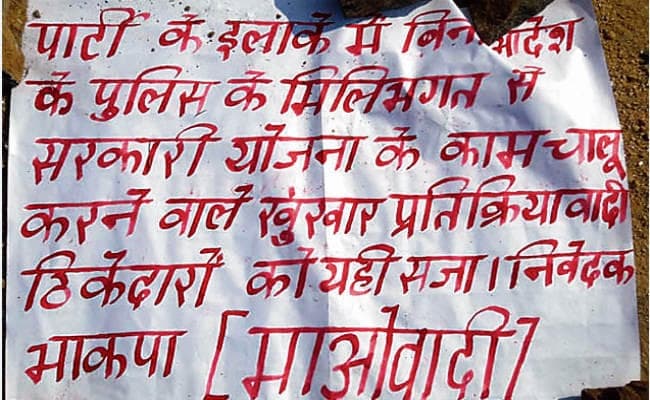 पार्टी के इलाके में बिना आदेश
के पुलिस के मिलिभगत से
सरकारी योजना के काम चालू
करने वाले खुंखार प्रतिक्रियावादी
ठिकेदारों को यही सजा। निवेदक
भाकपा [माओवादी]